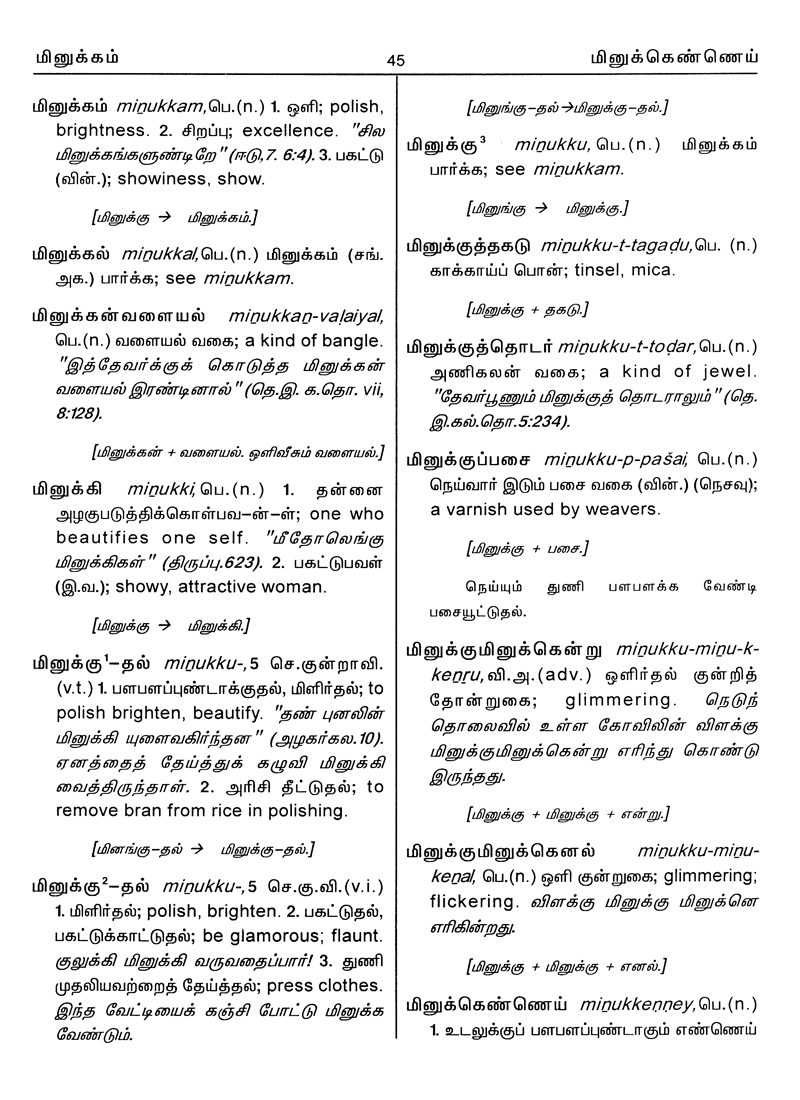 மினுக்கம்
45
மினுக்கெண்ணெய்
மினுக்கம் miṉukkam,பெ.(n.) 1. ஒளி; polish,
brightness. 2. சிறப்பு; excellence. "சில
மினுக்கங்களுண்டிறே" (ஈடு,7. 6:4). 3. பகட்டு
(வின்.); showiness, show.
[மினுக்கு → மினுக்கம்.]
மினுக்கல் miṉukkal,பெ.(n.) மினுக்கம் (சங்.
அக.) பார்க்க; see miṉukkam.
மினுக்கன்வளையல் miṉukkaṉ-vaḷaiyal,
பெ.(n.) வளையல் வகை; a kind of bangle.
"இத்தேவர்க்குக் கொடுத்த மினுக்கன்
வளையல் இரண்டினால்" (தெ.இ. க.தொ. vii,
8:128).
[மினுக்கன் + வளையல். ஒளிவீசும் வளையல்.]
மினுக்கி miṉukki,பெ.(n.) 1. தன்னை
அழகுபடுத்திக்கொள்பவ–ன்–ள்; one who
beautifies one self. "மீதோலெங்கு
மினுக்கிகள்" (திருப்பு.623). 2. பகட்டுபவள்
(இ.வ.); showy, attractive woman.
[மினுக்கு → மினுக்கி.]
மினுக்கு¹–தல் miṉukku-,5 செ.குன்றாவி.
(v.t.) 1. பளபளப்புண்டாக்குதல், மிளிர்தல்; to
polish brighten, beautify. "தண் புனலின்
மினுக்கி யுளைவகிர்ந்தன" (அழகர்கல.10).
ஏனத்தைத் தேய்த்துக் கழுவி மினுக்கி
வைத்திருந்தாள். 2. அரிசி தீட்டுதல்; to
remove bran from rice in polishing.
[மினங்கு–தல் → மினுக்கு–தல்.]
மினுக்கு²–தல் miṉukku-,5 செ.கு.வி.(v.i.)
1. மிளிர்தல்; polish, brighten. 2. பகட்டுதல்,
பகட்டுக்காட்டுதல்; be glamorous; flaunt.
குலுக்கி மினுக்கி வருவதைப்பார்! 3. துணி
முதலியவற்றைத் தேய்த்தல்; press clothes.
இந்த வேட்டியைக் கஞ்சி போட்டு மினுக்க
வேண்டும்.
[மினுங்கு–தல்→மினுக்கு–தல்.]
மினுக்கு³ miṉukku, பெ.(n.) மினுக்கம்
பார்க்க; see miṉukkam.
[மினுங்கு → மினுக்கு.]
மினுக்குத்தகடு miṉukku-t-tagaḍu,பெ. (n.)
காக்காய்ப் பொன்; tinsel, mica.
[மினுக்கு + தகடு.]
மினுக்குத்தொடர் miṉukku-t-toḍar,பெ.(n.)
அணிகலன் வகை; a kind of jewel.
"தேவர்பூணும் மினுக்குத் தொடராலும்" (தெ.
இ.கல்.தொ.5:234).
மினுக்குப்பசை miṉukku-p-pašai, பெ.(n.)
நெய்வார் இடும் பசை வகை (வின்.) (நெசவு);
a varnish used by weavers.
[மினுக்கு + பசை.]
நெய்யும் துணி பளபளக்க வேண்டி
பசையூட்டுதல்.
மினுக்குமினுக்கென்று miṉukku-miṉu-k-
keṉru,வி.அ.(adv.) ஒளிர்தல் குன்றித்
தோன்றுகை; glimmering. நெடுந்
தொலைவில் உள்ள கோவிலின் விளக்கு
மினுக்குமினுக்கென்று எரிந்து கொண்டு
இருந்தது.
[மினுக்கு + மினுக்கு + என்று.]
மினுக்குமினுக்கெனல் miṉukku-miṉu-
keṉal, பெ.(n.) ஒளி குன்றுகை; glimmering;
flickering. விளக்கு மினுக்கு மினுக்னெ
எரிகின்றது.
[மினுக்கு + மினுக்கு + எனல்.]
மினுக்கெண்ணெய் miṉukkeṇṇey,பெ.(n.)
1. உடலுக்குப் பளபளப்புண்டாகும் எண்ணெய்